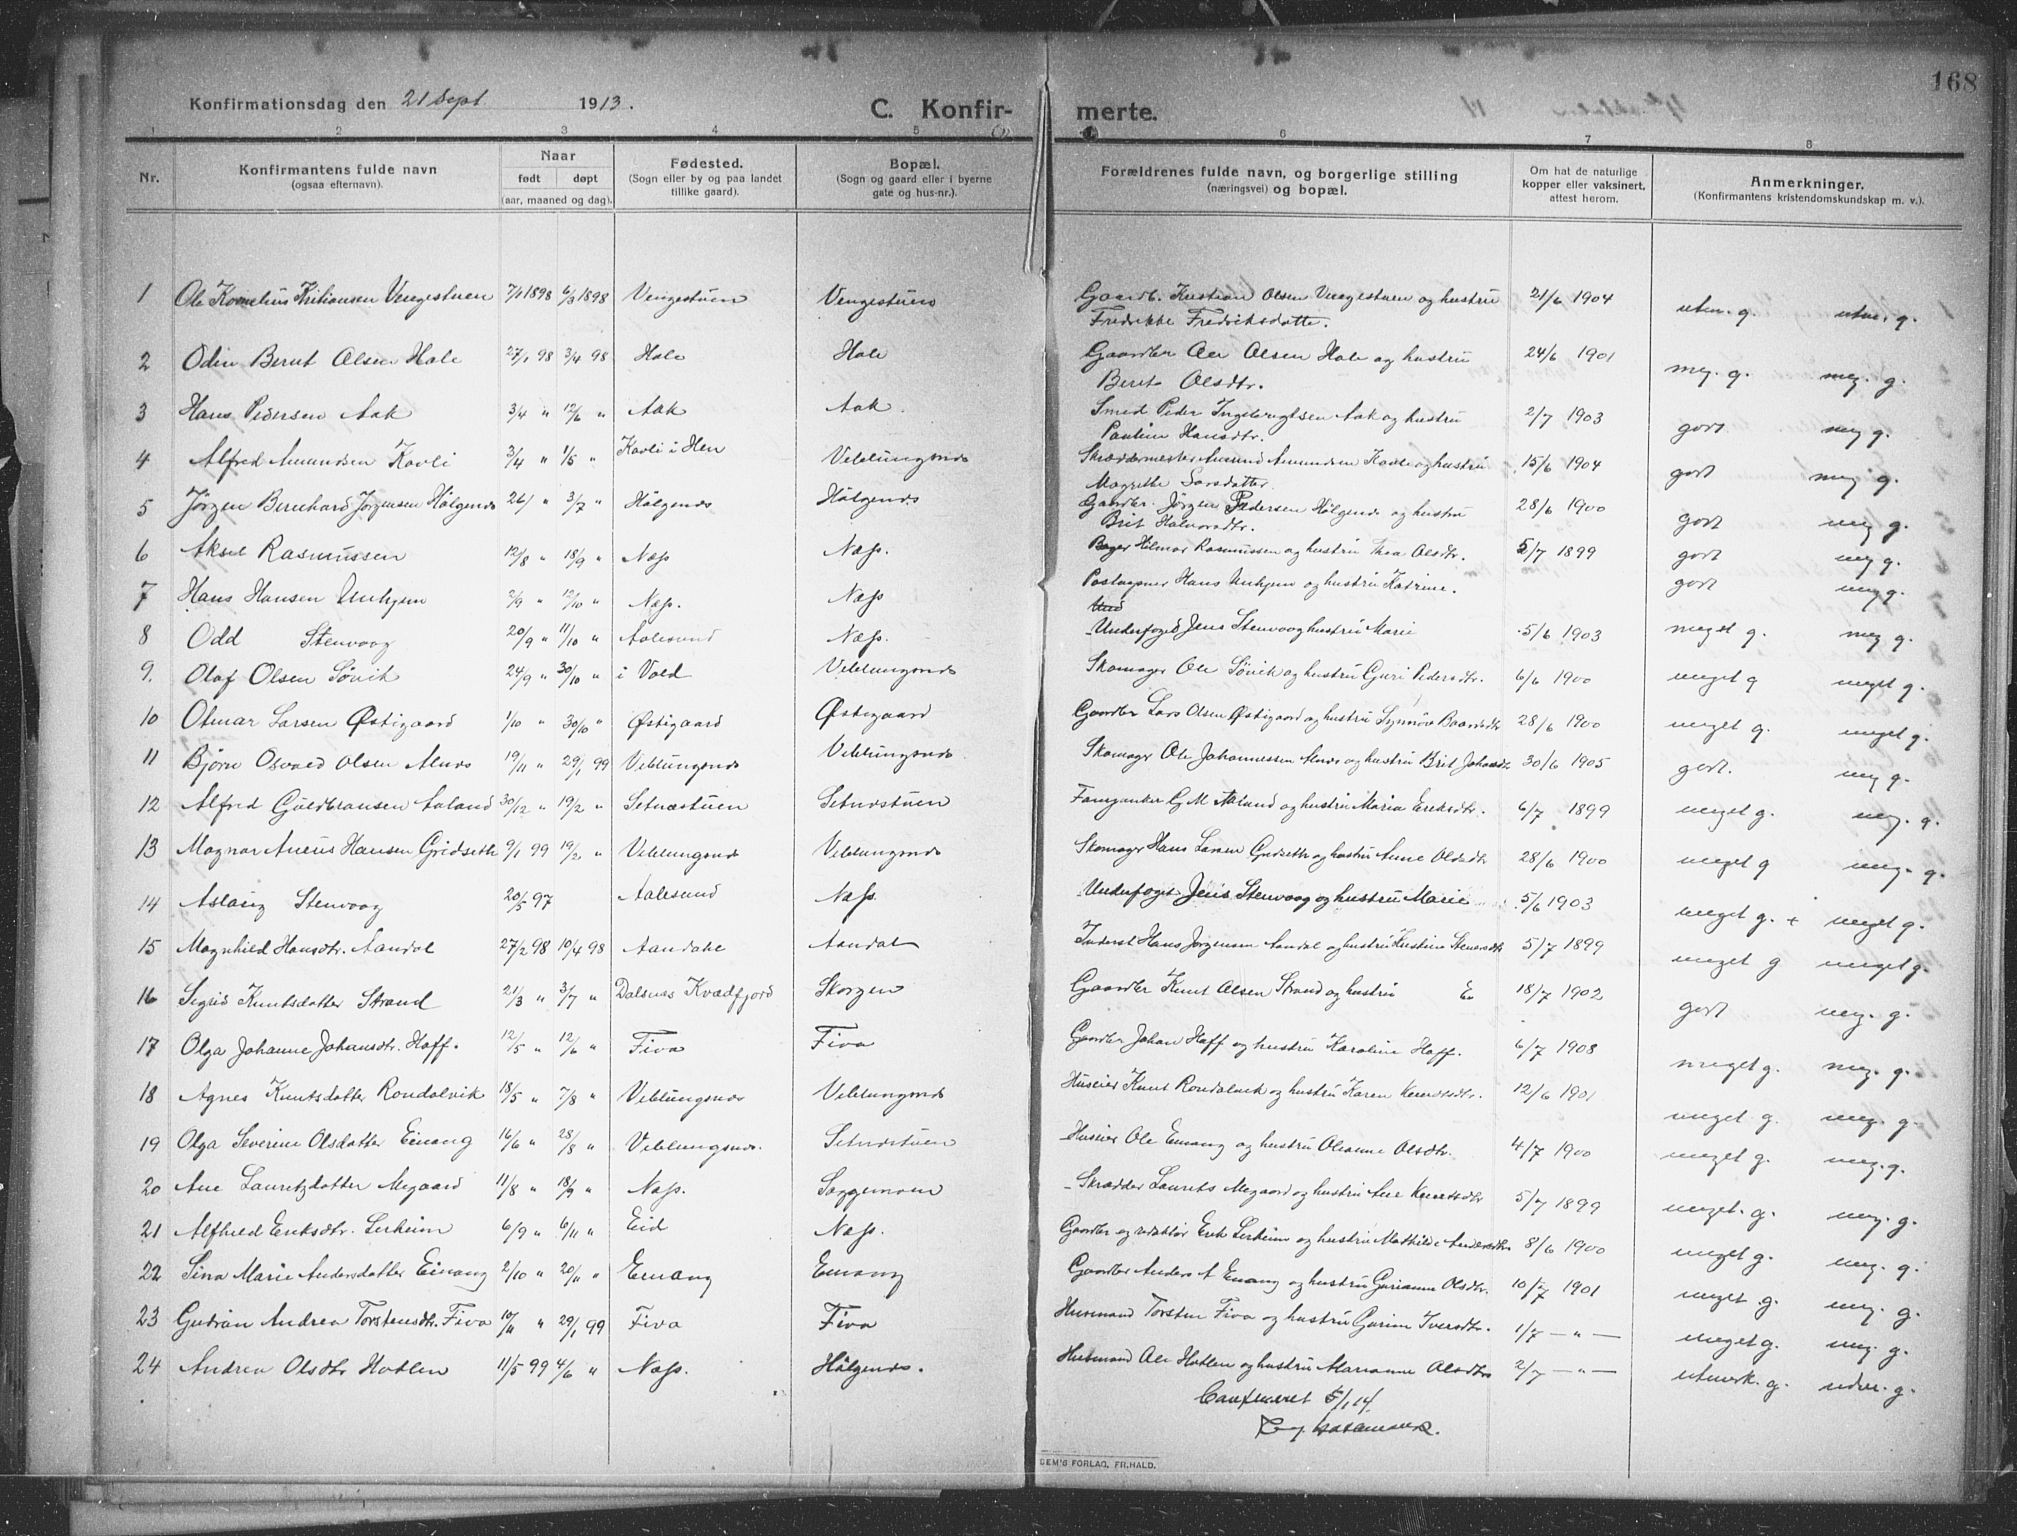 168
Konfirmationsdag den 21 Sept. 1913.
C. Konfirmerte.
1 2 3 4 5 6 7 8
Nr.
Konfirmantens fulde navn
(ogsaa efternavn).
Naar
født døpt
(aar, maaned og dag).
Fødested.
(Sogn eller by og paa landet
tillike gaard).
Bopæl.
(Sogn og gaard eller i byerne
gate og hus-nr.).
Forældrenes fulde navn, og borgerlige stilling
(næringsvei) og bopæl.
Om hat de naturlige
kopper eller vaksinert,
attest herom.
Anmerkninger.
(Konfirmantens kristendomskundskap m. v.).
1 Ole Kornelius Kristiansen Vengestuen 7/1 1898 6/3 1898 Vengestuen Vengestuen Gaardb. Kristian Olsen Vengestuen og hustru 21/6 1904 utm. g. utm. g.
Fredrikke Fredriksdatter.
2 Odin Bernt Olsen Hole 27/1 98 3/4 98 Hole Hole Gaardbr Ole Olsen Hole og hustru 24/6 1901 meg. g. meg. g.
Berit Olsdtr.
3 Hans Pedersen Aak 3/4 " 12/6 " Aak Aak. Smed Peder Ingebrigtsen Aak og hustru 2/7 1903 godt meg g.
Pauline Hansdtr.
4 Alfred Amundsen Kavli 3/4 " 1/5 " Kavli i Hen Veblungsnes Skræddermester Amund Amundsen Kavli og hustru 15/6 1904 godt meg g.
Magrethe Larsdatter.
5 Jørgen Bernhard Jørgensen Hølgenes 26/ " 3/7 " Hølgenes Hølgenes Gaardbr. Jørgen Pedersen Hølgenes og hustru 28/6 1900 godt meg g.
Brit Halvorsdtr.
6 Aksel Rasmussen 12/8 " 18/9 " Næss Næss. Bager Hilmar Rasmussen og hustru Thea Olsdtr. 5/7 1899 godt meg g.
7 Hans Hansen Unhjem 2/9 " 12/10 " Næss. Næss Postaapner Hans Unhjem og hustru Katrine. godt meg g.
8 Odd Stenvaag 20/9 " 11/10 " Aalesund Næss. Underfoged Jens Stenvaag hustru Marie 5/6 1903 meget g. meg g.
9. Olaf Olsen Søvik 24/9 " 30/10 " i Vold Veblungsnes Skomager Ole Søvik og hustru Guri Pedersdtr. 6/6 1900 meget g meget g.
10 Otmar Larsen Østigaard 1/10 " 30/10 " Østigaard Østigaard Gaardbr Lars Olsen Østigaard og hustru Synnøve Baardsdtr 28/6 1900 meget g. meget g.
11 Bjørn Osvald Olsen Alnes 19/11 " 29/1 99 Veblungsnes Veblungsnes Skomager Ole Johannessen Alnes og hustru Brit Johansdtr 30/6 1905 godt. meg g.
12 Alfred Guldbransen Aaland 30/12 " 19/2 " Setnæstuen Setnesstuen G M Aaland og hustru Maria Eriksdtr. 6/7 1899 meget g. meg. g.
13 Magnar Hansen Gridseth 9/1 99 19/2 " Veblungsnes Veblungsnes Skomager Hans Larsen Gridseth og hustru Anne Olsdtr 28/6 1900 meget g meg. g.
14 Aslaug Stenvaag 20/5 97 Aalesund Næss. Underfoget Jens Stenvaag og hustru Marie 5/6 1903 meget g. + meget g.
15 Magnhild Hansdtr. Aandal 27/2 98 10/4 98 Aandale Aandal Inderst Hans Jørgensen Aandal og hustru Kristine 5/7 1899 meget g meget g.
16 Sigrid Knutsdatter Strand 21/3 " 3/7 " Dalsnes Kvædfjord Skorgen Gaardbr Knut Olsen Strand og hustru 18/7 1902 godt meg. g.
17 Olga Johanne Johansdtr. Hoff. 12/5 " 12/6 " Fiva Fiva Gaardbr Johan Hoff og hustru Karoline Hoff. 6/7 1908 meget g. meg. g.
18 Agnes Knutsdatter Romdalvik 18/5 " 7/8 " Veblungsnes Veblungsnes Huseier Knut Romdalvik og hustru Karen Knutsdtr. 12/6 1901 meget g. meg. g.
19 Olga Severine Olsdatter Einang 16/6 " 28/8 " Veblungsnes. Setnesstuen Huseier Ole Einang og hustru Oleanne Olsdtr. 4/7 1900 meget g. meg. g.
20 Ane Lauritzdatter Megaard 11/8 " 18/9 " Næss. Soggemoen Skrædder Laurits Megaard og hustru Ane Knutsdtr 5/7 1899 meget. g. meg. g.
21 Alfhild Eriksdtr. Lerheim 6/9 " 6/11 " Eid Næss. Gaardbr og redaktør Erik Lerheim og hustru Mathilde Andersdtr 8/6 1900 meget g. meg. g.
22 Sina Marie Andersdatter Einang 2/10 " 20/11 " Einang Einang Gaardbr Anders A Einang og hustru Gurianne Olsdtr. 10/7 1901 meget g. meg. g.
23 Gudrun Andrea Torstensdtr. Fiva 10/11 " 29/1 99 Fiva Fiva Husmand Torsten Fiva og hustru Gurine Iversdtr. 1/7 — " — meget g. meg. g.
24 Andrea Olsdtr Hatlen 11/5 99 4/6 " Næss. Hølgenes. Husmand Ole Hatlen og hustru Marianne Olsdtr 2/7 — " — utmerk. g. g.
Confereret 5/1 14.
DEM'S FORLAG, FR.HALD.